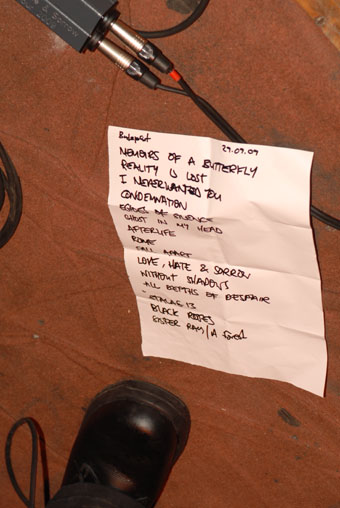 & SORROW
Budapest 29.09.09
MEMOIRS OF A BUTTERFLY
REALITY IS LOST
I NEVER WANTED YOU
CONDEMNATION
EDGES OF SILENCE
GHOST IN MY HEAD
AFTERLIFE
ROME
FALL APART
LOVE, HATE & SORROW
WITHOUT SHADOWS
ALL DEPTHS OF DESPAIR
STALAG 13
BLACK ROSES
SISTER RAY/A forest